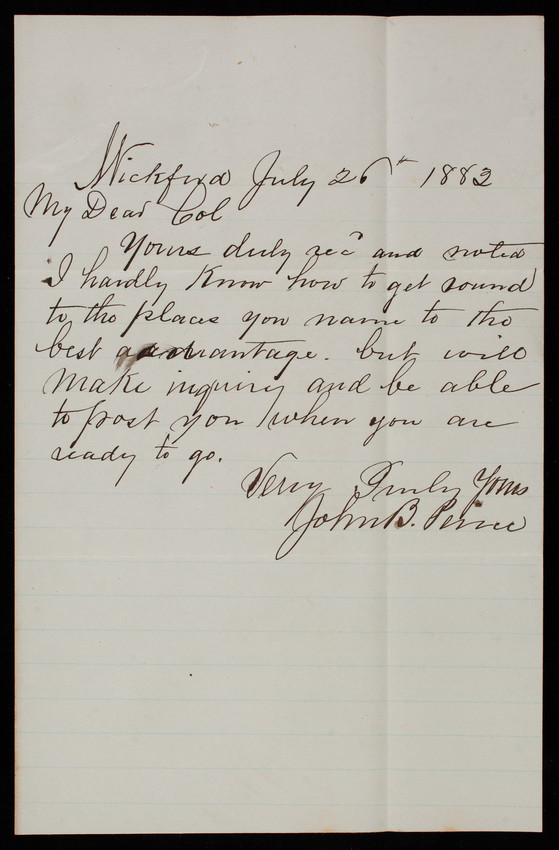 Wickford July 26th 1882
My Dear Col
Yours duly recd and noted
I hardly know how to get round
to the places you name to the
best advantage. but will
make inquiry and be able
to post you when you are
ready to go.
Very Truly Yours
John B. Peirce